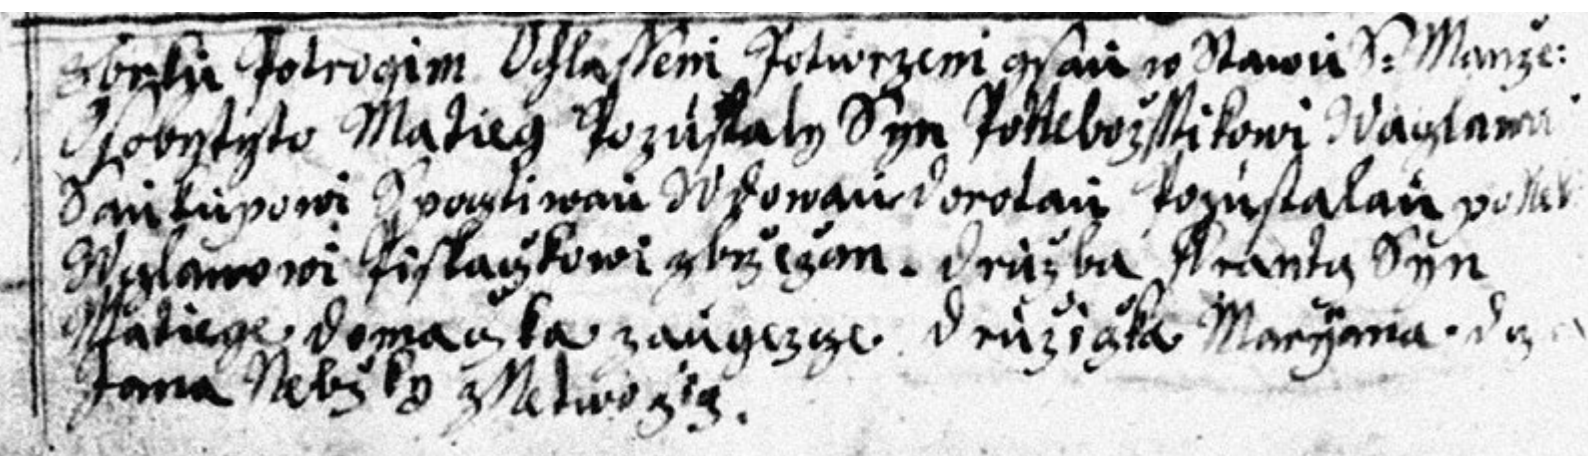 zbrku Potrogim Ochlasseni Potwrzeni gsau w Stawu S: Manže:
Osobytyto Matieg Pozustaly Syn Po Nebozsstikowi Waglawu
Saukupowi Spogtiwau Wdowau dorotau Pozustalau po Neb
Waglawowi Pistaczkowi zbržežan. družba Franta Syn
Matiege domaczka z augezze. družicžka Maryana. dcz
Jana Nebžky z Netwozig.